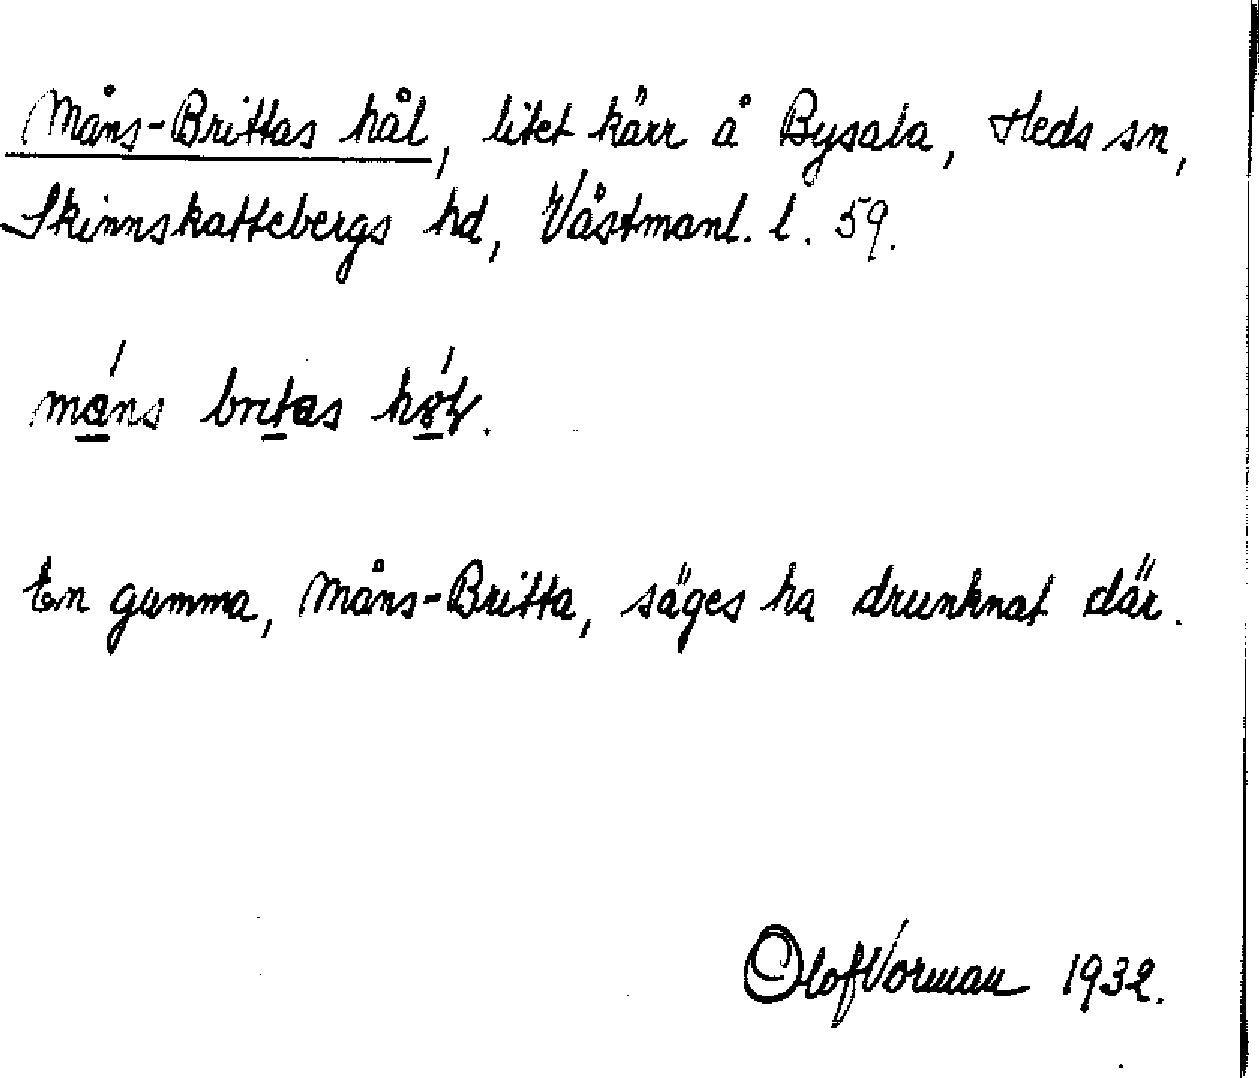 Måns-Brittas hål, litet kärr å Bysala, Heds sn,
Skinnskattebergs hd, Västmanl. l. 59.
måns britas
En gumma, Måns-Britta, säges ha drunknat där.
Olof Vorman 1932.